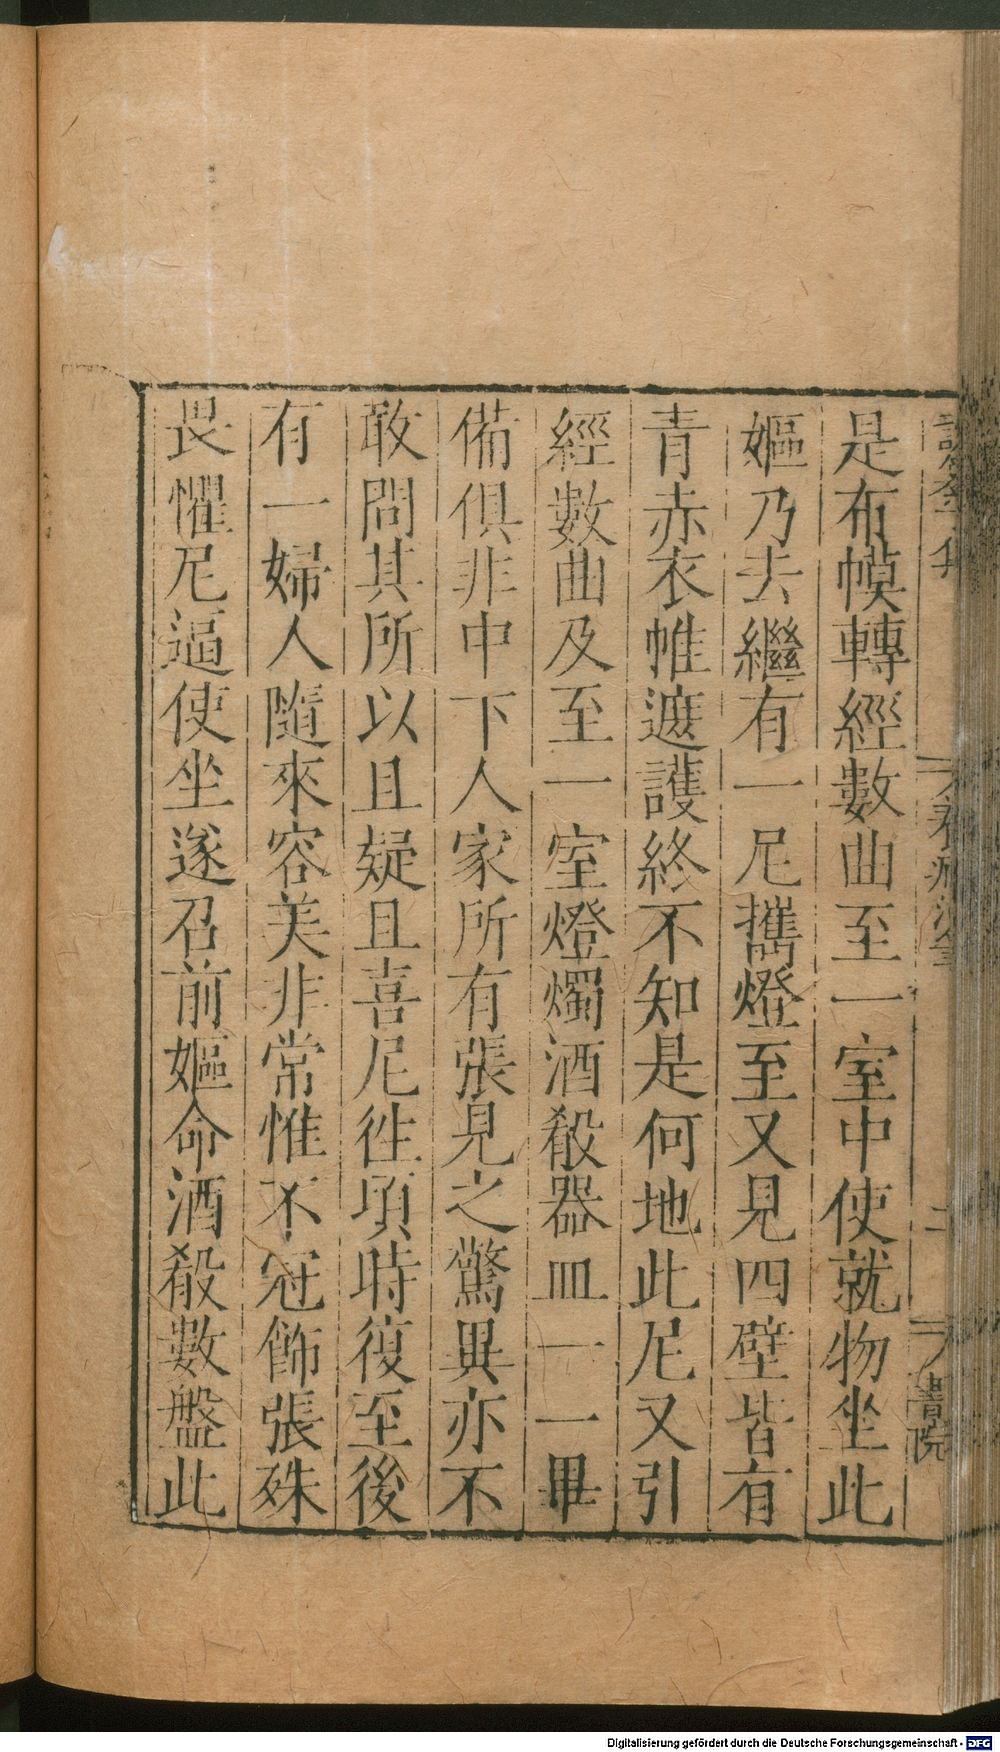 是布幙轉經數曲至一室中使就物坐此
嫗乃去繼有一尼攜燈至又見四壁皆有
青赤衣帷遮護終不知是何地此尼又引
經數曲及至一室燈燭酒殽器皿一一畢
備俱非中下人家所有張見之驚異亦不
敢問其所以且疑且喜尼徃頃時復至後
有一婦人隨來容美非常惟不冠飾張殊
畏懼尼逼使坐遂召前嫗命酒殽數盤此
書院
Digitalisierung gefördert durch die Deutsche Forschungsgemeinschaft - DFG